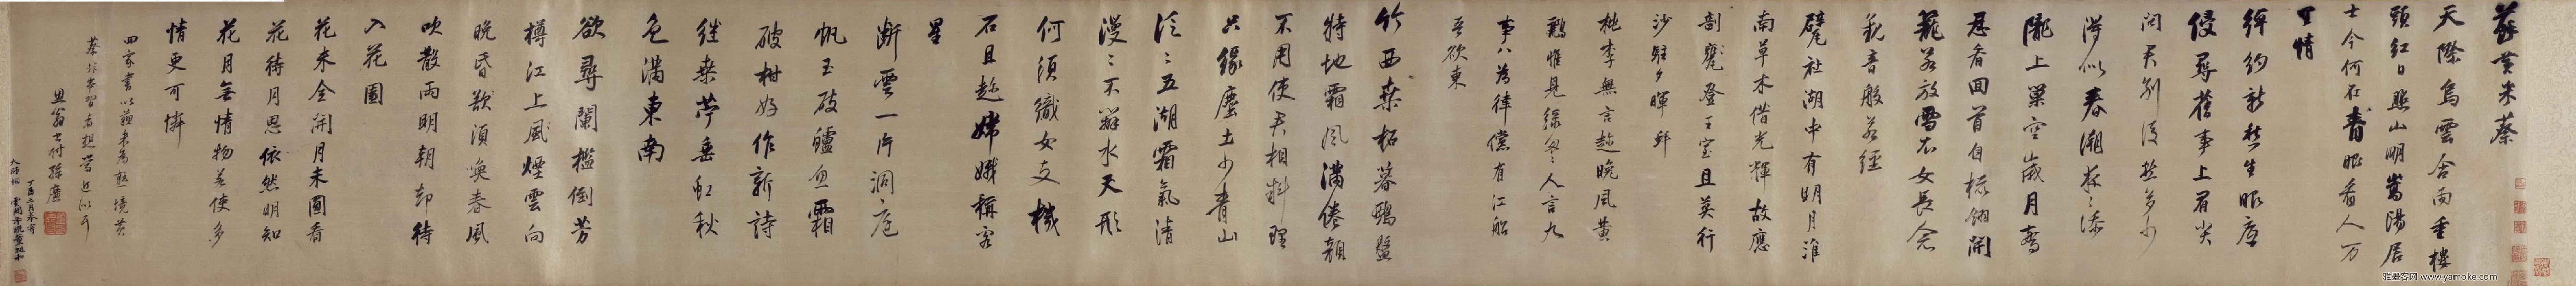 蘇黃米蔡
天際烏雲含雨重樓
頭紅日照山明嵩陽居
士今何在青眼看人万
里情
綽約新嬌生眼底
侵尋舊事上眉尖
問君別後愁多少
得似春潮夜〻添
隴上巢空歲月驚
忍看回首自梳翎開
籠若放雪衣女長念
觀音般若經
甓社湖中有明月淮
南草木借光輝故應
剖蚌登王室且莫行
沙弄夕暉
桃李無言越晚風黃
鸝惟見綠葱〻人言九
事八為律儻有江船
吾欲東
竹西桑柘暮鴉盤
特地霜風滿倦顏
不用使君相料理
只緣塵土少青山
泛〻五湖霜氣清
漫〻不辨水天形
何須織女支機
石且趁嫦娥稱客
星
斷雲一片洞庭
帆玉破鱸魚霜
破柑好作新詩
繼桑苧垂虹秋
色滿東南
欲尋闌檻倒芳
樽江上風煙雲向
晚昏欲須喚春風
吹散雨明朝却待
入花園
花來全開月未圓看
花待月思依然明知
花月無情物若使多
情更可憐
四家書以蘇米為熟境黃
蔡非本習者想當近似耳
思翁書付孫庭
雅墨客网 www.yamoke.com